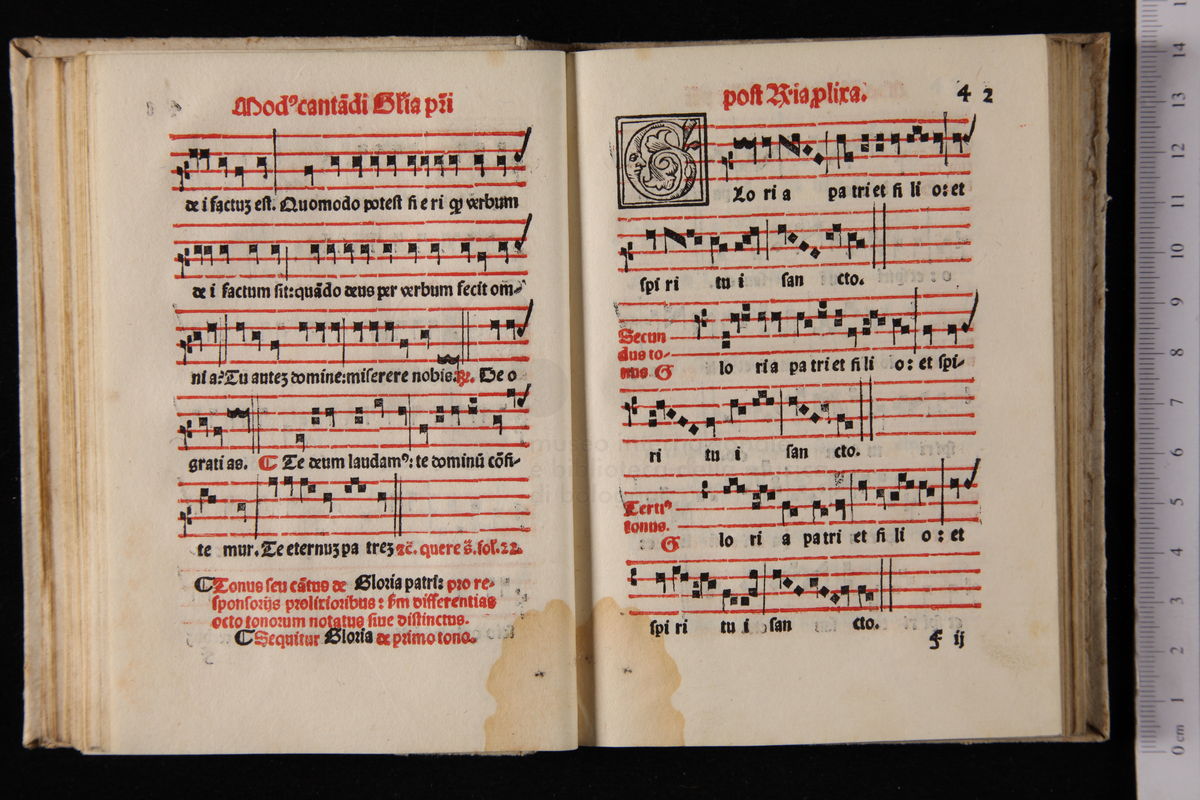 Modꝰ cantãdi Gľia pr̃i
de i factuʒ est. Quomodo potest fi e ri ꝙ verbum
de i factum sit: quãdo deus per verbum fecit om̃-
ni a? Tu auteʒ domine: miserere nobis. ꝶ. De o
grati as. ¶ Te deum laudamꝰ: te dominũ cõfi-
te mur. Te eternuʒ pa treʒ ⁊c̃. quere s̃. fol. 22.
¶ Tonus seu cãtus de Gloria patri: pro re-
sponsorijs prolixioribus: s̃m differentias
octo tonorum notatus siue distinctus.
¶ Sequitur Gloria de primo tono.
post Rͬia ꝓlixa. 42
G Lo ri a pa tri et fi li o: et
spi ri tu i san cto.
Secun
dus to-
nus. G lo ri a pa tri et fi li o: et spi-
ri tu i san cto.
Tertiꝰ
tonus.
G lo ri a pa tri et fi li o: et
spi ri tu i san cto.
f ij
museo internazionale
e biblioteca
di bologna
14
13
12
11
10
9
8
7
6
5
4
3
2
1
0 cm